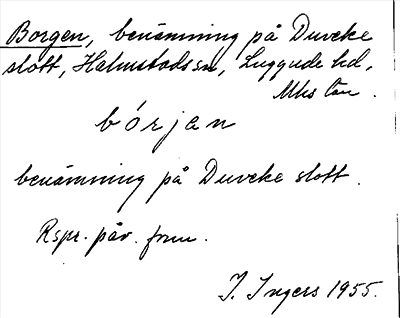 Borgen, benämning på Duveke
slott, Halmstads sn, Luggude hd,
Mhs län.
bórjan
benämning på Duveke slott.
Rspr. påv. frun.
I. Ingers 1955.